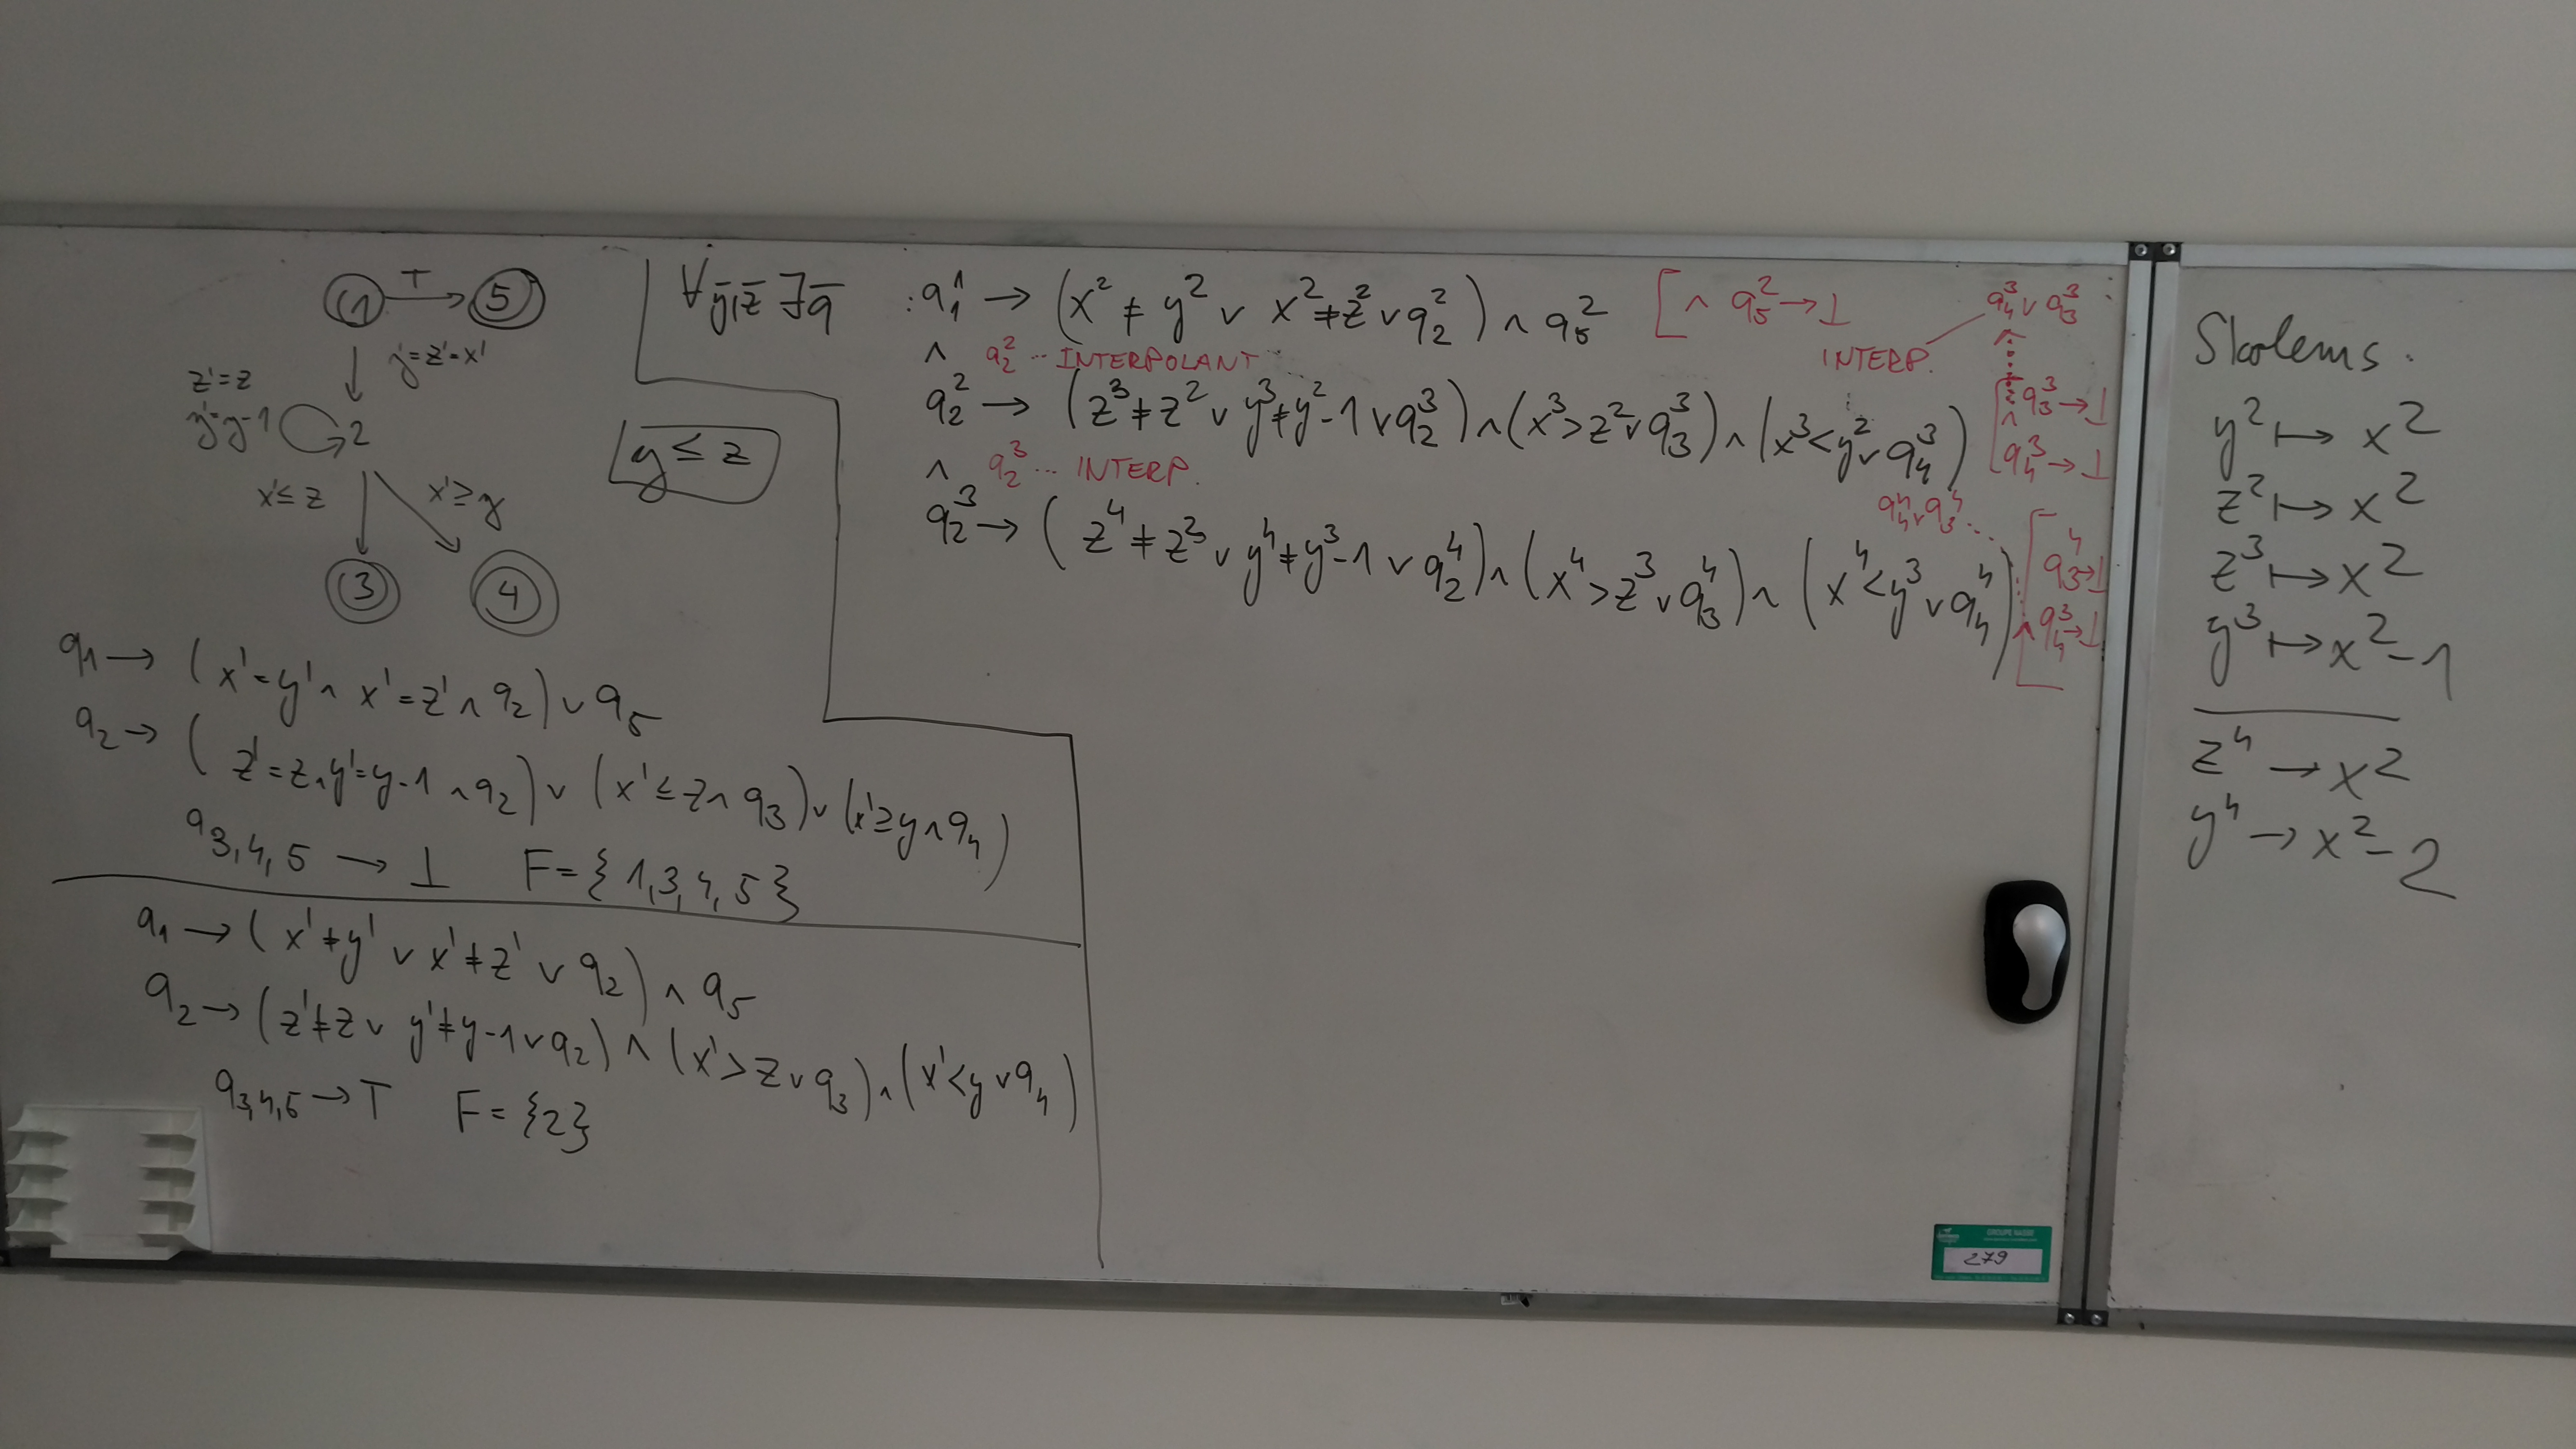 1 T 5
y'=z'=x'
z'=z
y'=y-1
2
x'≤z x'≥y
3 4
q₁ → (x'=y' ∧ x'=z' ∧ q₂) ∨ q₅
q₂ → (z'=z ∧ y'=y-1 ∧ q₂) ∨ (x'≤z ∧ q₃) ∨ (x'≥y ∧ q₄)
q₃,₄,₅ → ⊥ F={1,3,4,5}
q₁ → (x'≠y' ∨ x'≠z' ∨ q₂) ∧ q₅
q₂ → (z'≠z ∨ y'≠y-1 ∨ q₂) ∧ (x'>z ∨ q₃) ∧ (x'<y ∨ q₄)
q₃,₄,₅ → T F={2}
y ≤ z
∀ȳ,z̄ ∃q̄ : q₁¹ → (x² ≠ y² ∨ x² ≠ z² ∨ q₂²) ∧ q₅² [∧ q₅² → ⊥
∧ q₂² ... INTERPOLANT
INTERP. q₄³ ∨ q₃³
q₂² → (z³ ≠ z² ∨ y³ ≠ y²-1 ∨ q₂³) ∧ (x³ > z² ∨ q₃³) ∧ (x³ < y² ∨ q₄³)
[q₃³ → ⊥
∧
q₄³ → ⊥
∧ q₂³ ... INTERP.
q₄⁴ ∨ q₃⁴
q₂³ → (z⁴ ≠ z³ ∨ y⁴ ≠ y³-1 ∨ q₂⁴) ∧ (x⁴ > z³ ∨ q₃⁴) ∧ (x⁴ < y³ ∨ q₄⁴)
[q₃⁴ → ⊥
∧ q₄³ → ⊥
Skolems:
y² ↦ x²
z² ↦ x²
z³ ↦ x²
y³ ↦ x²-1
z⁴ → x²
y⁴ → x²-2
279